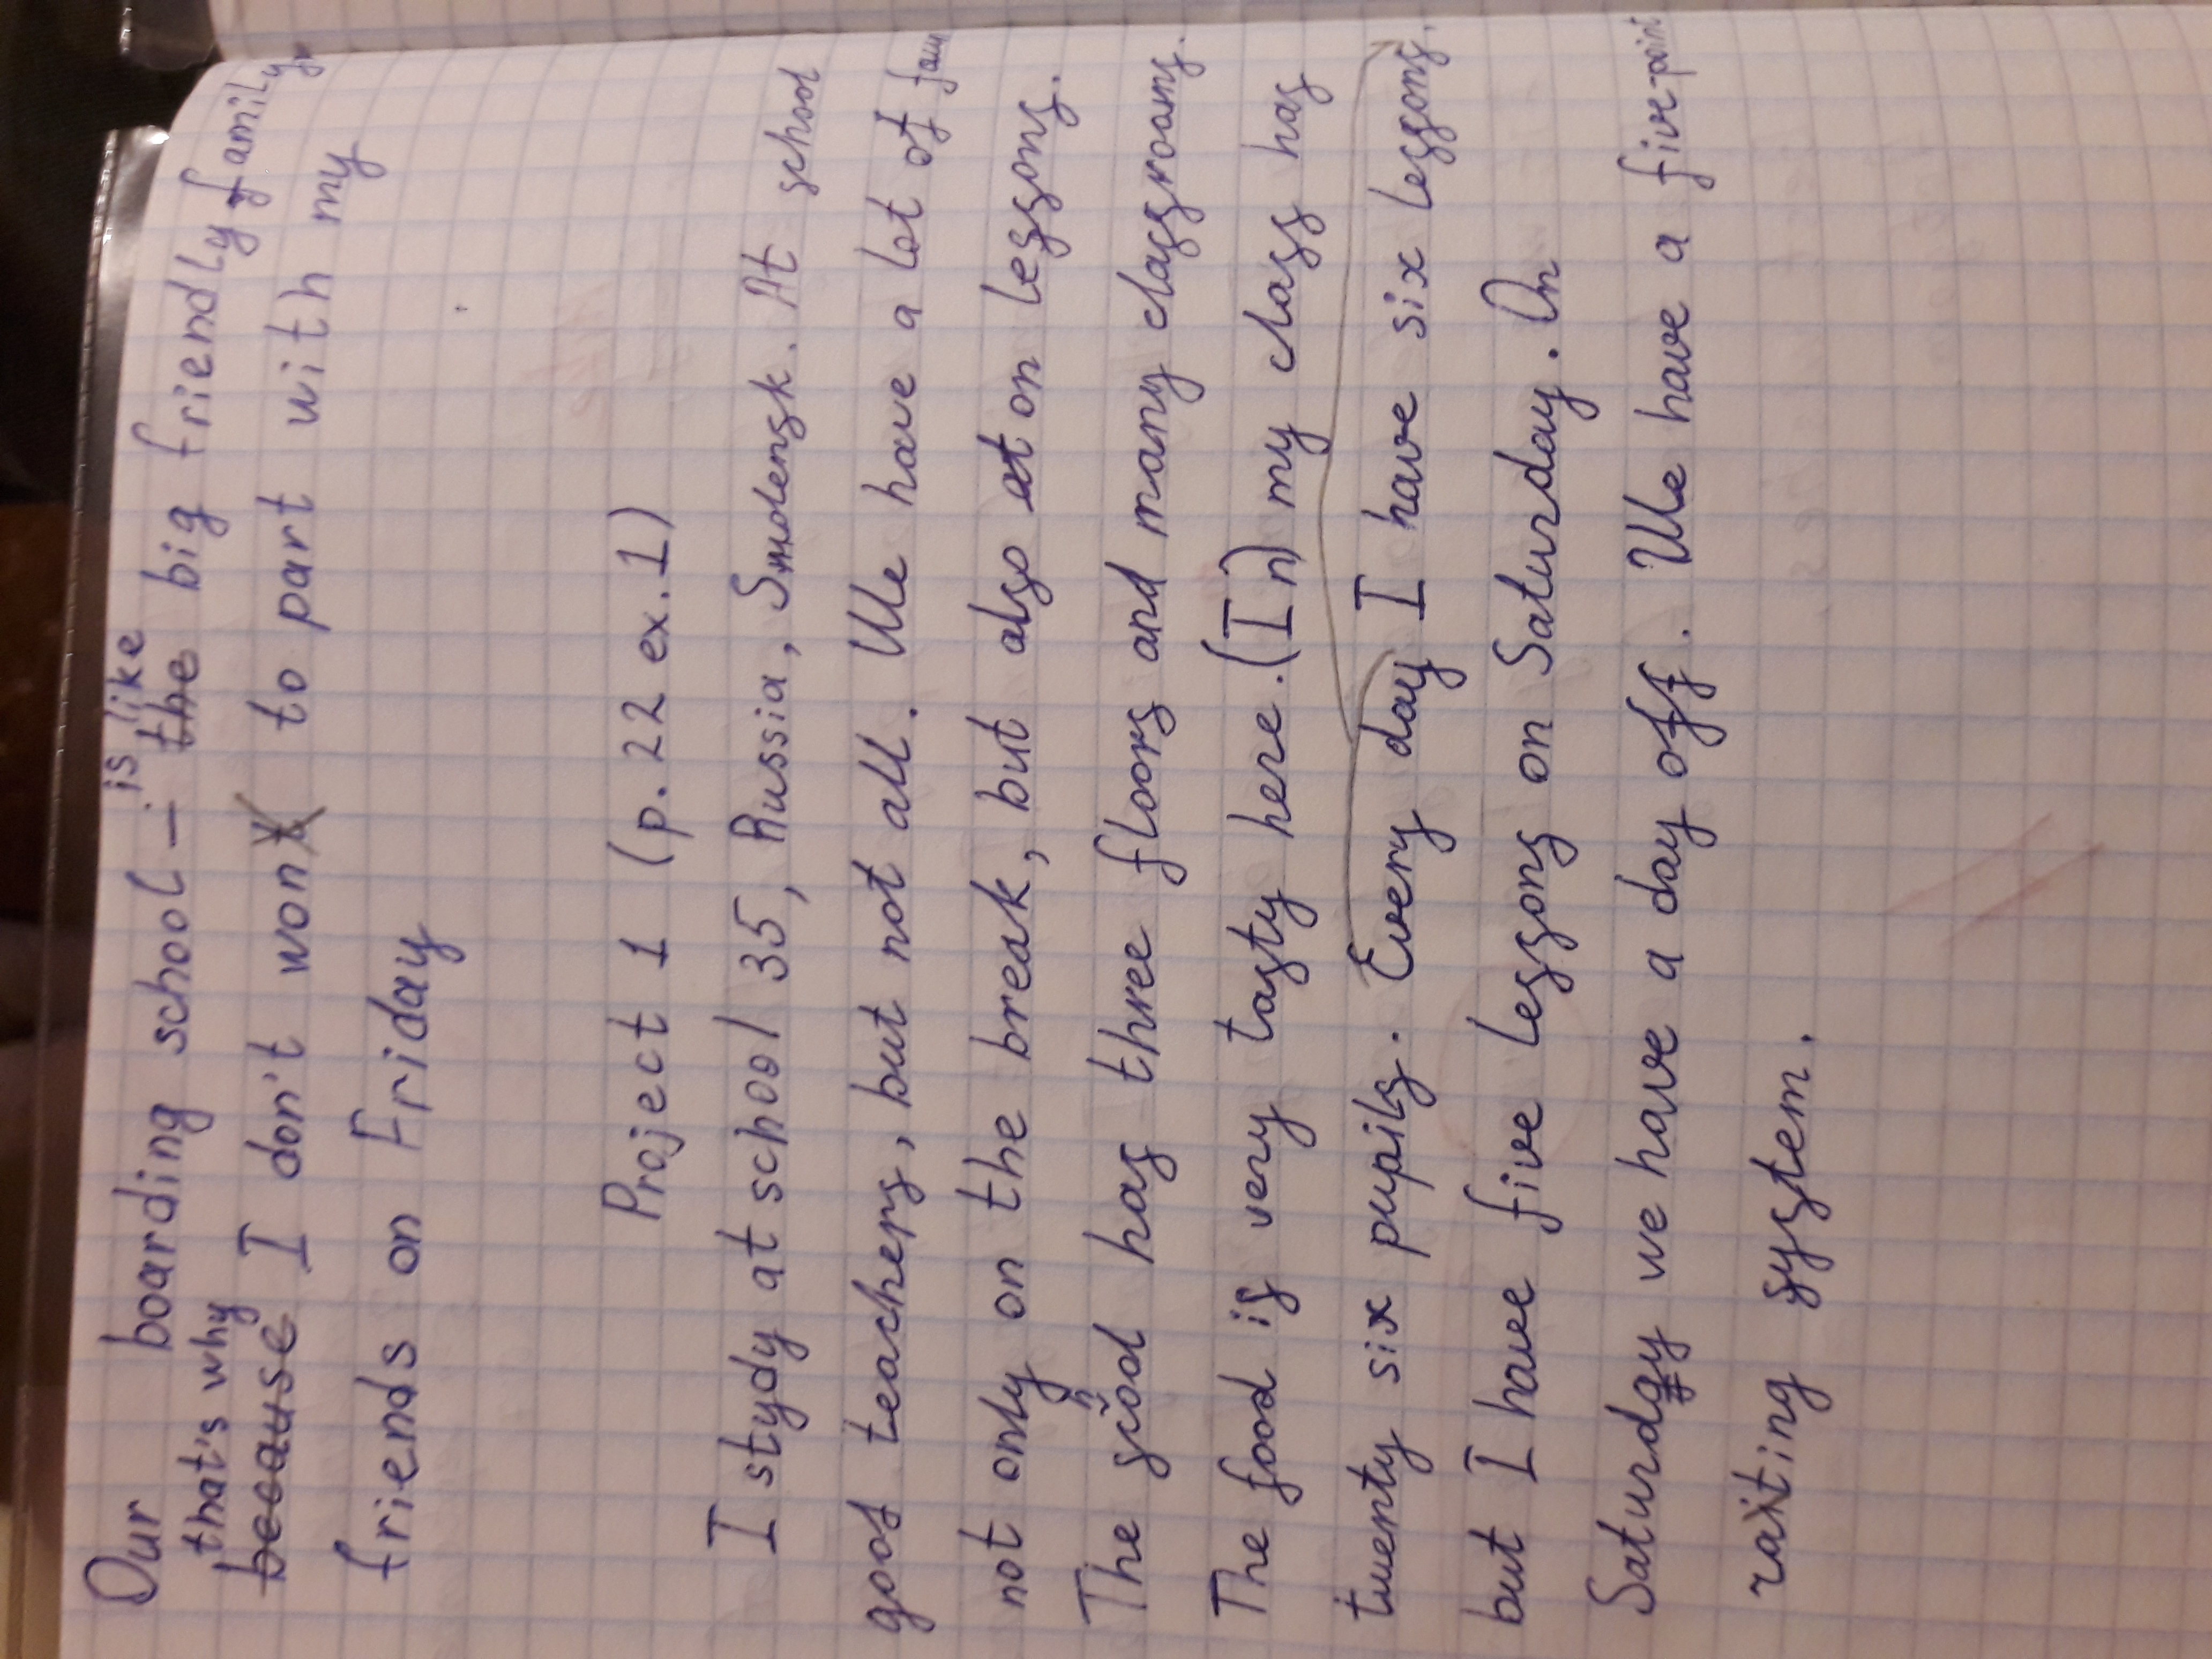 is like
Our boarding school – the big friendly family,
that's why
because I don't wont to part with my
friends on Friday
Project 1 (p. 22 ex. 1)
I stydy at school 35, Russia, Smolensk. At school
good teachers, but not all. We have a lot of fau
not only on the break, but also at on lessons.
The scool has three floors and many classrooms.
The food is very tasty here. (In) my class has
twenty six pupils. Every day I have six lessons,
but I have five lessons on Saturday. On
Saturday we have a day off. We have a five-point
raiting system.